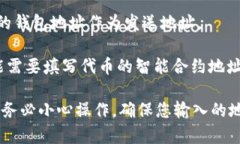 的钱包地址作为发送地址。
能需要填写代币的智能合约地址
务必小心操作，确保您输入的地